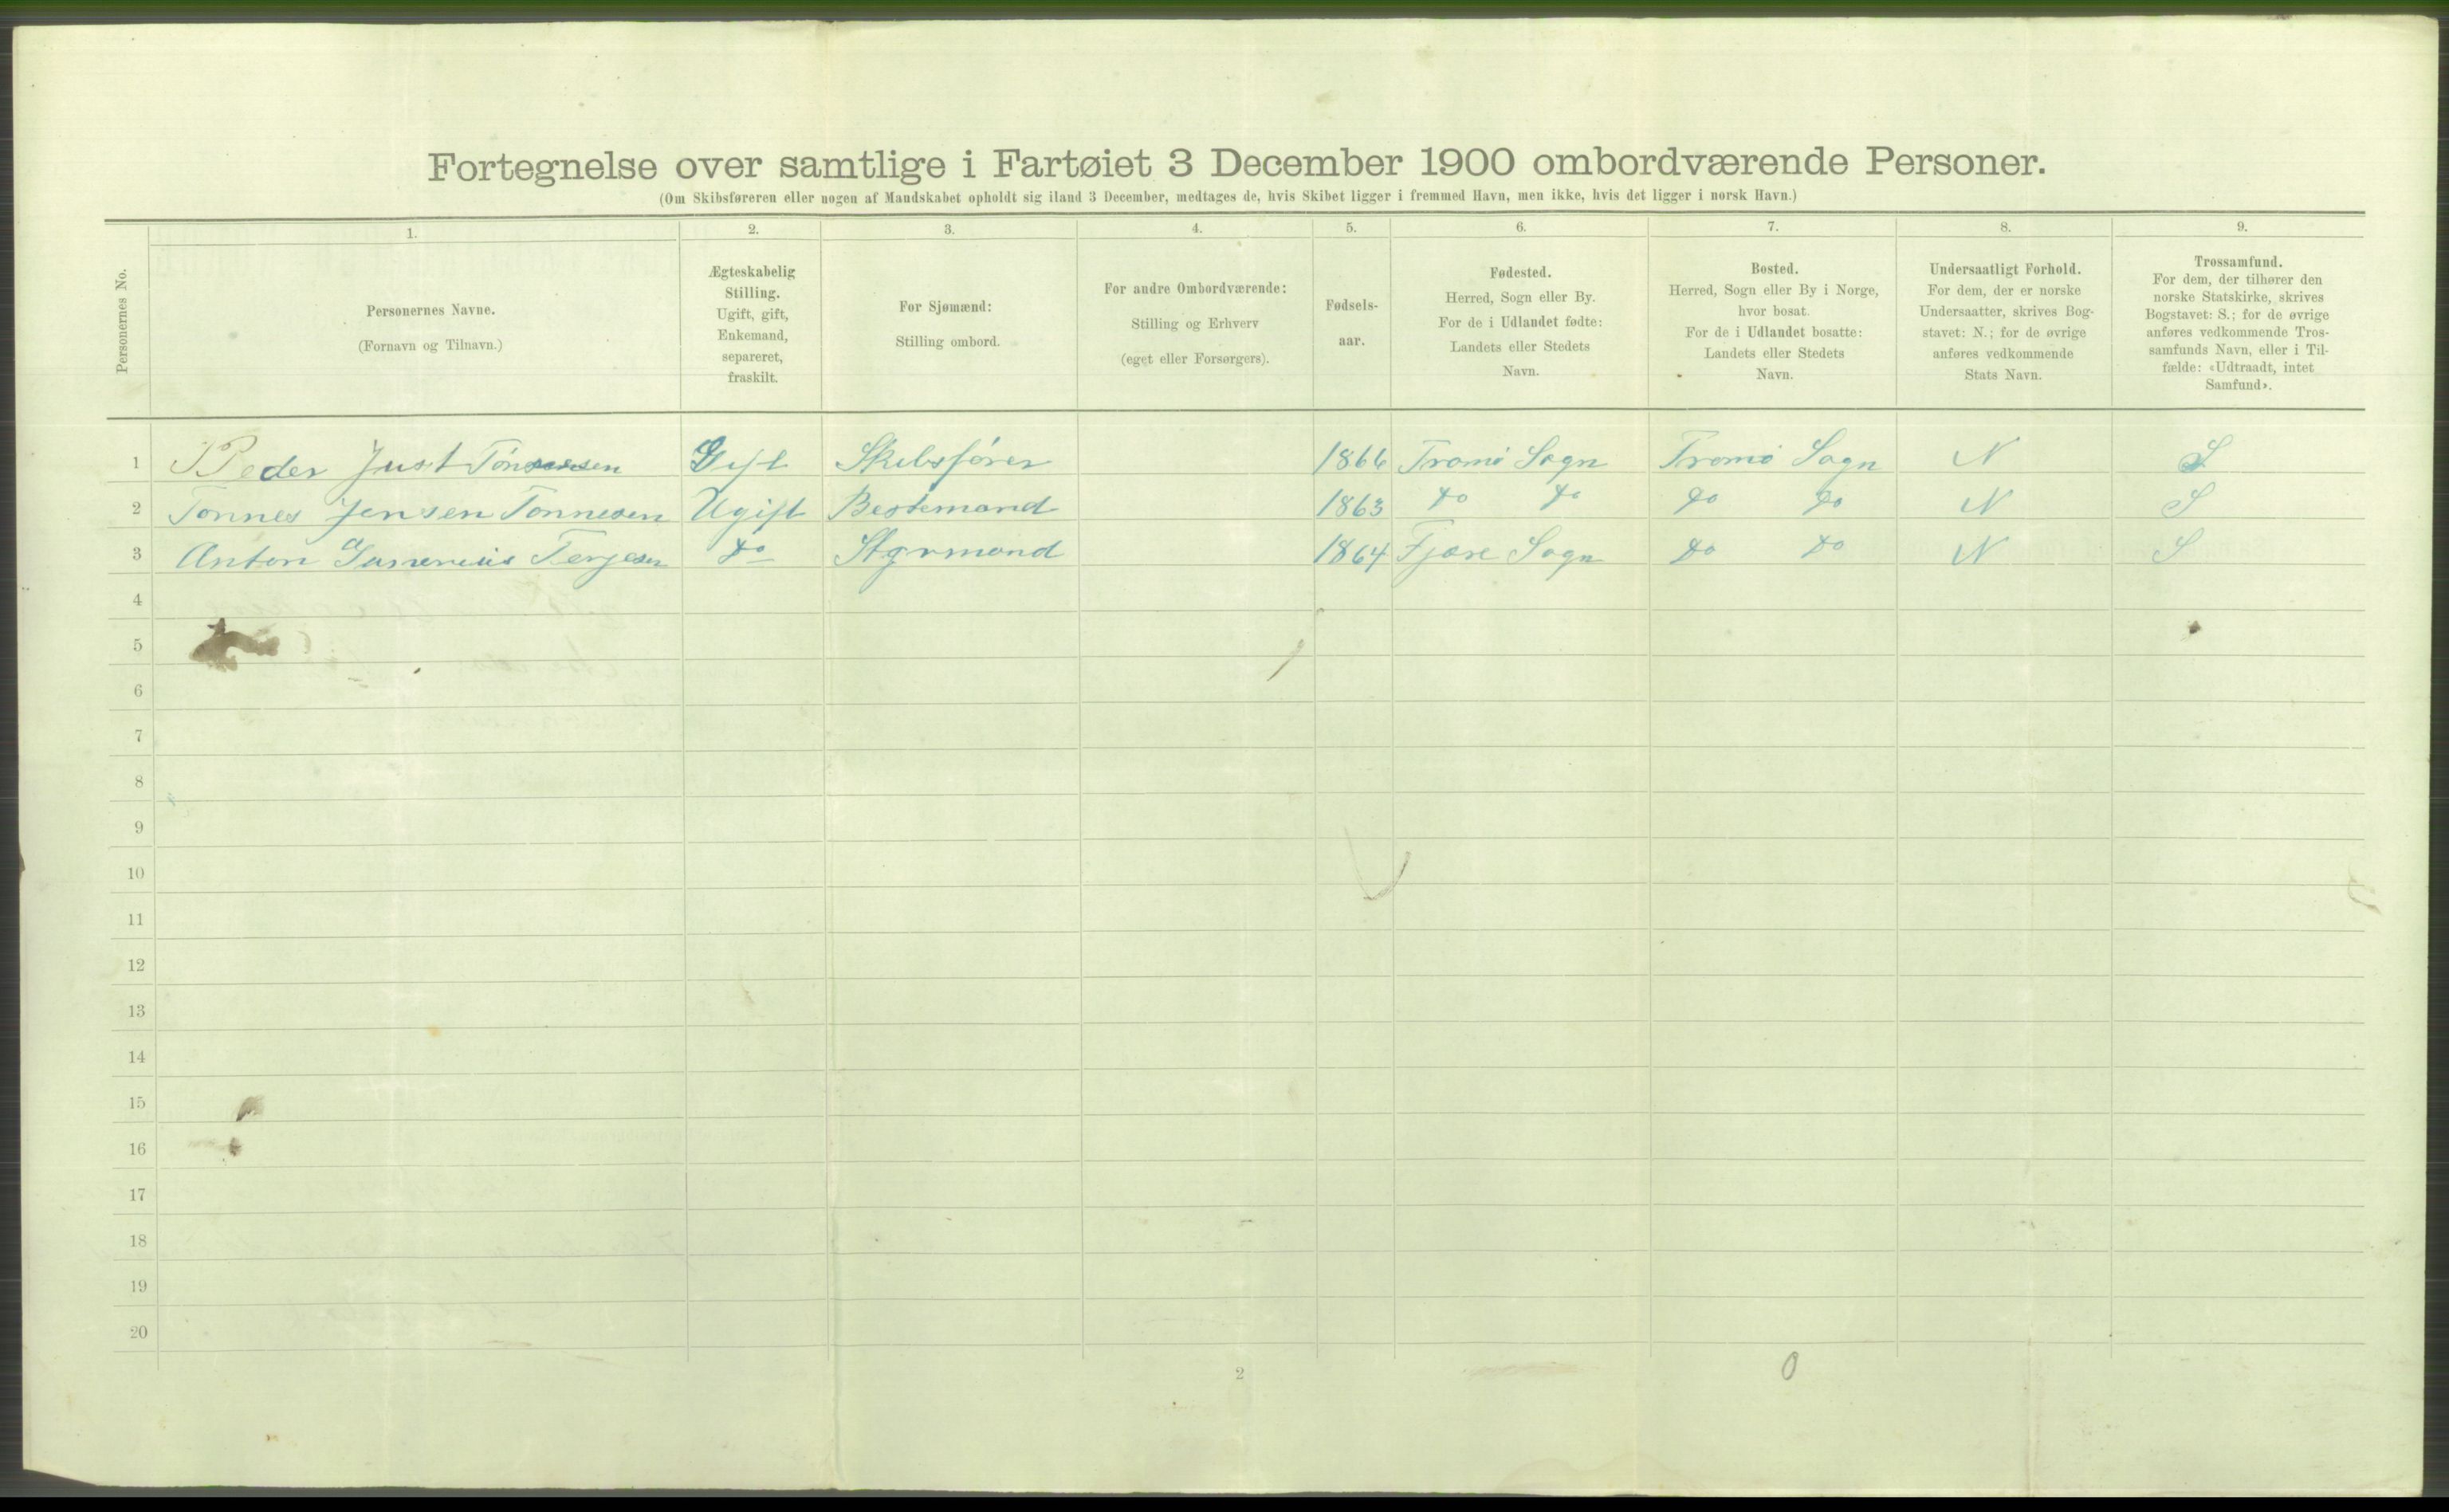 Fortegnelse over samtlige i Fartøiet 3 December 1900 ombordværende Personer.
(Om Skibsføreren eller nogen af Mandskabet opholdt sig iland 3 December, medtages de, hvis Skibet ligger i fremmed Havn, men ikke, hvis det ligger i norsk Havn.)
Personernes No.
1.
Personernes Navne.
(Fornavn og Tilnavn.)
2.
Ægteskabelig
Stilling.
Ugift, gift,
Enkemand,
separeret,
fraskilt.
3.
For Sjømænd:
Stilling ombord.
4.
For andre Ombordværende:
Stilling og Erhverv
(eget eller Forsørgers).
5.
Fødsels-
aar.
6.
Fødested.
Herred, Sogn eller By.
For de i Udlandet fødte:
Landets eller Stedets
Navn.
7.
Bosted.
Herred, Sogn eller By i Norge,
hvor bosat.
For de i Udlandet bosatte:
Landets eller Stedets
Navn.
8.
Undersaatligt Forhold.
For dem, der er norske
Undersaatter, skrives Bog-
stavet: N.; for de øvrige
anføres vedkommende
Stats Navn.
9.
Trossamfund.
For dem, der tilhører den
norske Statskirke, skrives
Bogstavet: S.; for de øvrige
anføres vedkommende Tros-
samfunds Navn, eller i Til-
fælde: «Udtraadt, intet
Samfund».
1 Peder Just Gift Skibsfører 1866 Tromø Sogn Tromø Sogn N S
2 Tønnes Jensen Tønnesen Ugift Bestemand 1863 do do do do N S
3 Anton Terjesen do Styrmand 1864 Fjære Sogn do do N S
4
5
6
7
8
9
10
11
12
13
14
15
16
17
18
19
20
2
0